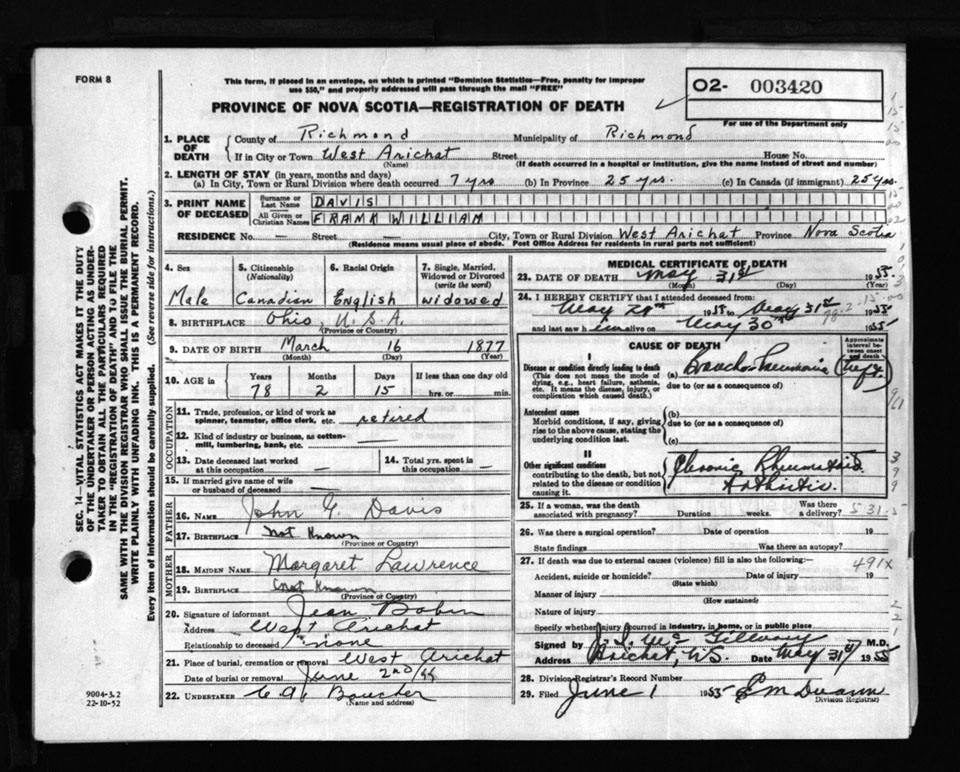 FORM 8
This form, if placed in an envelope, on which is printed "Dominion Statistics—Free, penalty for improper
use $50," and properly addressed will pass through the mail "FREE"
PROVINCE OF NOVA SCOTIA—REGISTRATION OF DEATH
02- 003420
For use of the Department only
1. PLACE OF DEATH
County of Richmond Municipality of Richmond
If in City or Town West Arichat Street House No.
(Name) (If death occurred in a hospital or institution, give the name instead of street and number)
2. LENGTH OF STAY (in years, months and days)
(a) In City, Town or Rural Division where death occurred 7 yrs (b) In Province 25 yrs. (c) In Canada (if immigrant) 25 yrs.
3. PRINT NAME OF DECEASED
Surname or Last Name DAVIS
All Given or Christian Names FRANK WILLIAM
RESIDENCE No. — Street — City, Town or Rural Division West Arichat Province Nova Scotia
(Residence means usual place of abode. Post Office Address for residents in rural parts not sufficient)
4. Sex
Male
5. Citizenship (Nationality)
Canadian
6. Racial Origin
English
7. Single, Married, Widowed or Divorced (write the word)
widowed
8. BIRTHPLACE Ohio U.S.A.
(Province or Country)
9. DATE OF BIRTH March 16 1877
(Month) (Day) (Year)
10. AGE in Years Months Days If less than one day old
78 2 15 hrs. or min.
OCCUPATION
11. Trade, profession, or kind of work as spinner, teamster, office clerk, etc. retired
12. Kind of industry or business, as cotton-mill, lumbering, bank, etc. —
13. Date deceased last worked at this occupation —
14. Total yrs. spent in this occupation —
15. If married give name of wife or husband of deceased —
FATHER
16. NAME John G. Davis
17. BIRTHPLACE Not Known
(Province or Country)
MOTHER
18. MAIDEN NAME Margaret Lawrence
19. BIRTHPLACE Not Known
(Province or Country)
20. Signature of informant Jean Bobin
Address West Arichat
Relationship to deceased none
21. Place of burial, cremation or removal West Arichat
Date of burial or removal June 2nd/55
22. UNDERTAKER Boucher
(Name and address)
MEDICAL CERTIFICATE OF DEATH
23. DATE OF DEATH May 31st 1955
(Month) (Day)
24. I HEREBY CERTIFY that I attended deceased from:
May 1955 to May 31st 1955
and last saw him alive on May 30th 1955
CAUSE OF DEATH
Approximate interval between onset and death
I
Disease or condition directly leading to death
(This does not mean the mode of dying, e.g., heart failure, asthenia, etc. It means the disease, injury, or complication which caused death.)
(a) Broncho Pneumonia
due to (or as a consequence of)
Antecedent causes
Morbid conditions, if any, giving rise to the above cause, stating the underlying condition last.
(b)
due to (or as a consequence of)
(c)
II
Other significant conditions
contributing to the death, but not related to the disease or condition causing it.
Chronic Rheumatoid
Arthritis
25. If a woman, was the death associated with pregnancy? Duration weeks. Was there a delivery?
26. Was there a surgical operation? Date of operation 19
State findings Was there an autopsy?
27. If death was due to external causes (violence) fill in also the following: 491X
Accident, suicide or homicide? Date of injury 19
(State which)
Manner of injury
(How sustained)
Nature of injury
Specify whether injury occurred in industry, in home, or in public place
Signed by M.D.
Address Arichat, N.S. Date May 31st 1955
28. Division Registrar's Record Number
29. Filed June 1 1955
Division Registrar
SEC. 14—VITAL STATISTICS ACT MAKES IT THE DUTY
OF THE UNDERTAKER OR PERSON ACTING AS UNDERTAKER TO OBTAIN ALL THE PARTICULARS REQUIRED
IN THE "REGISTRATION OF DEATH" AND TO FILE THE
SAME WITH THE DIVISION REGISTRAR WHO SHALL ISSUE THE BURIAL PERMIT.
WRITE PLAINLY WITH UNFADING INK. THIS IS A PERMANENT RECORD.
Every item of information should be carefully supplied. (See reverse side for instructions.)
9004-3.2
22-10-52